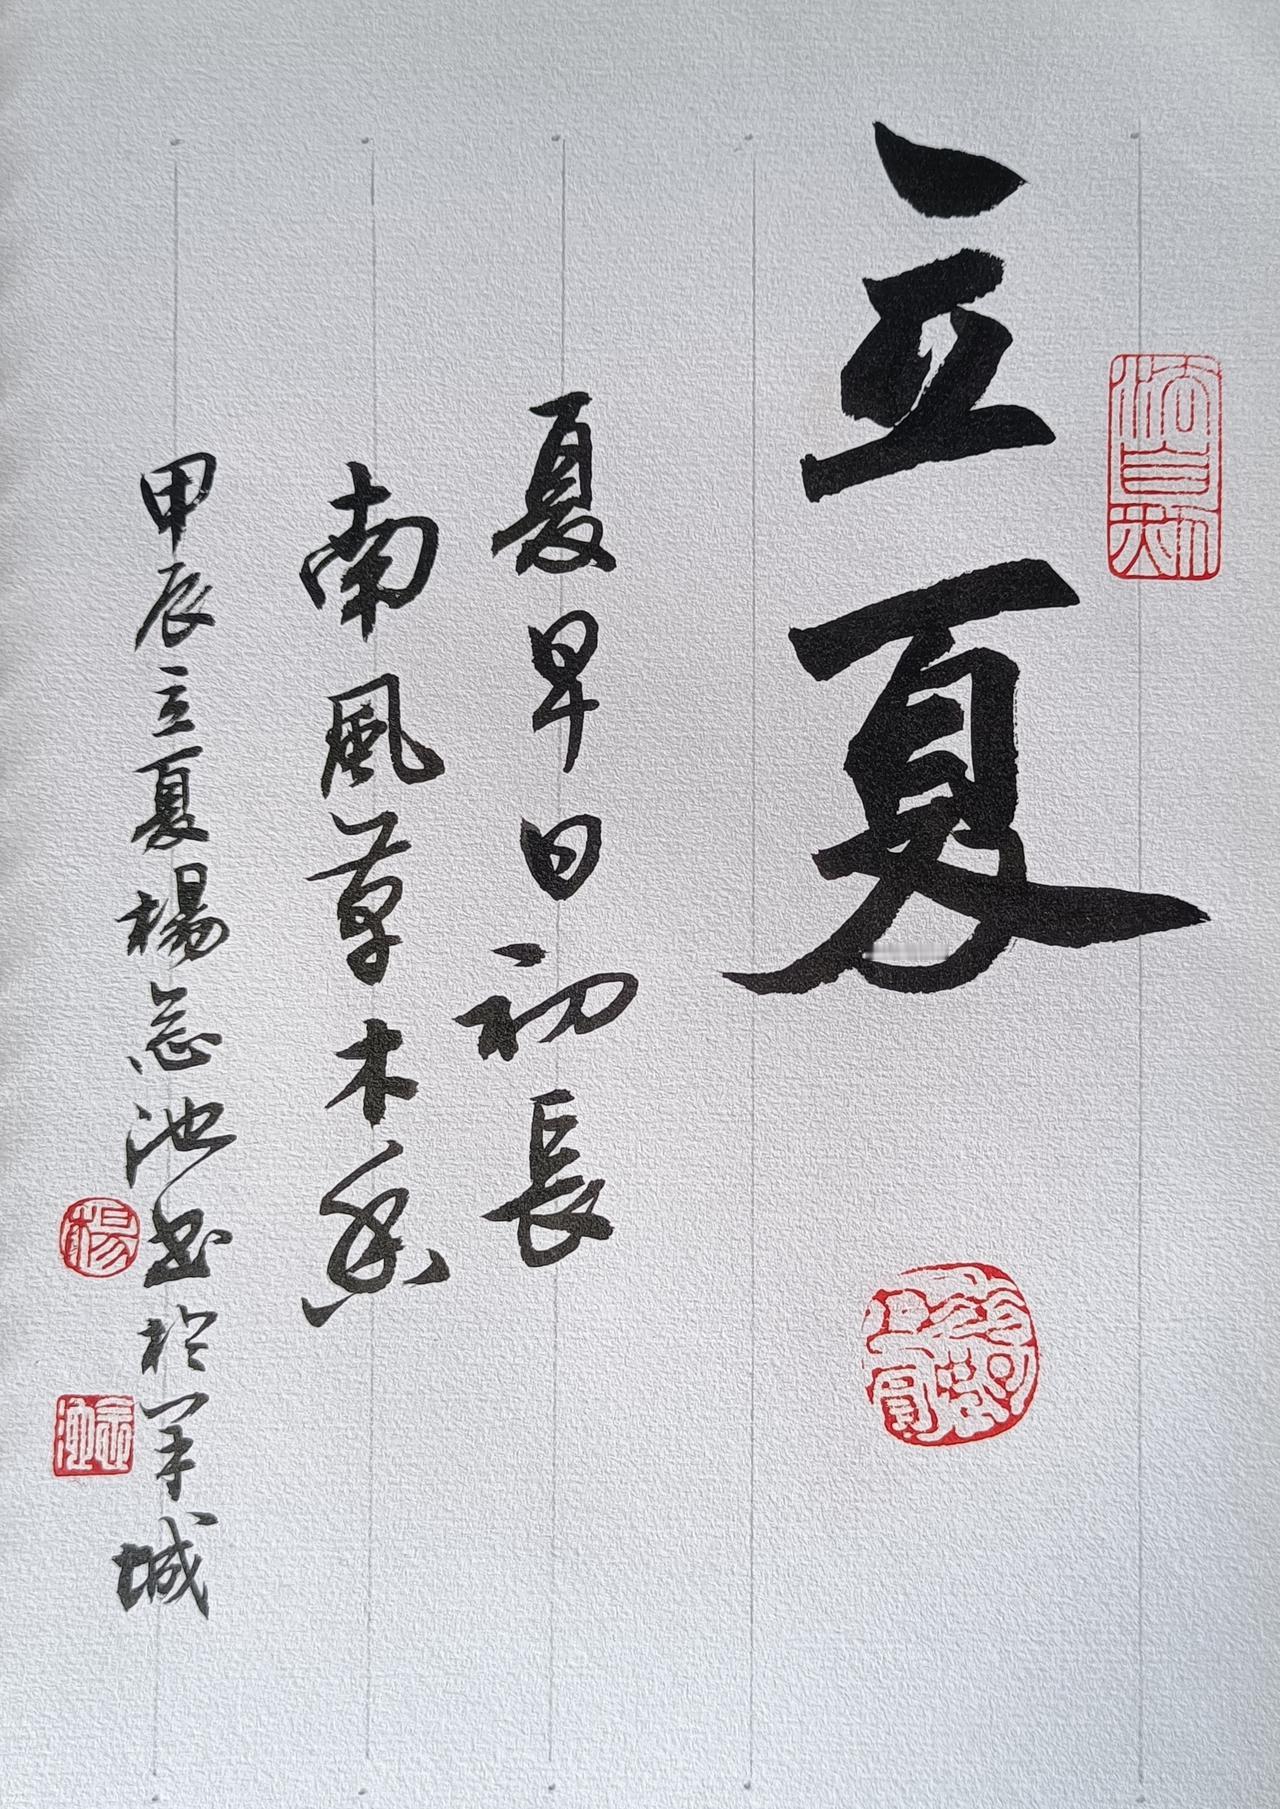 立夏
夏早日初長
南風草木香
甲辰立夏楊志池书於羊城
楊
志池